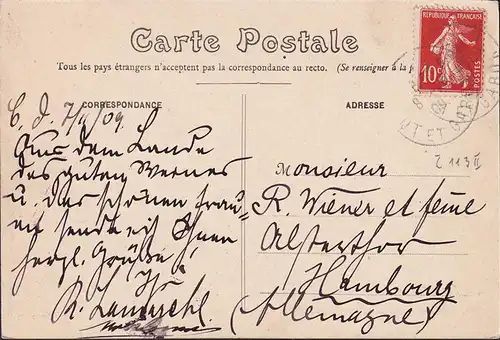 Carte Postale
Tous les pays étrangers n'acceptent pas la correspondance au recto. (Se renseigner à la
RÉPUBLIQUE FRANÇAISE
10c
POSTES
CORRESPONDANCE
ADRESSE
09.
Aus dem Lande
des guten
u. des schönen
sende ich Ihnen
herzl. Grüße!
Ihr
Monsieur
R. Wiener et feme
Alsterthor
Hambourg
(Allemagne)